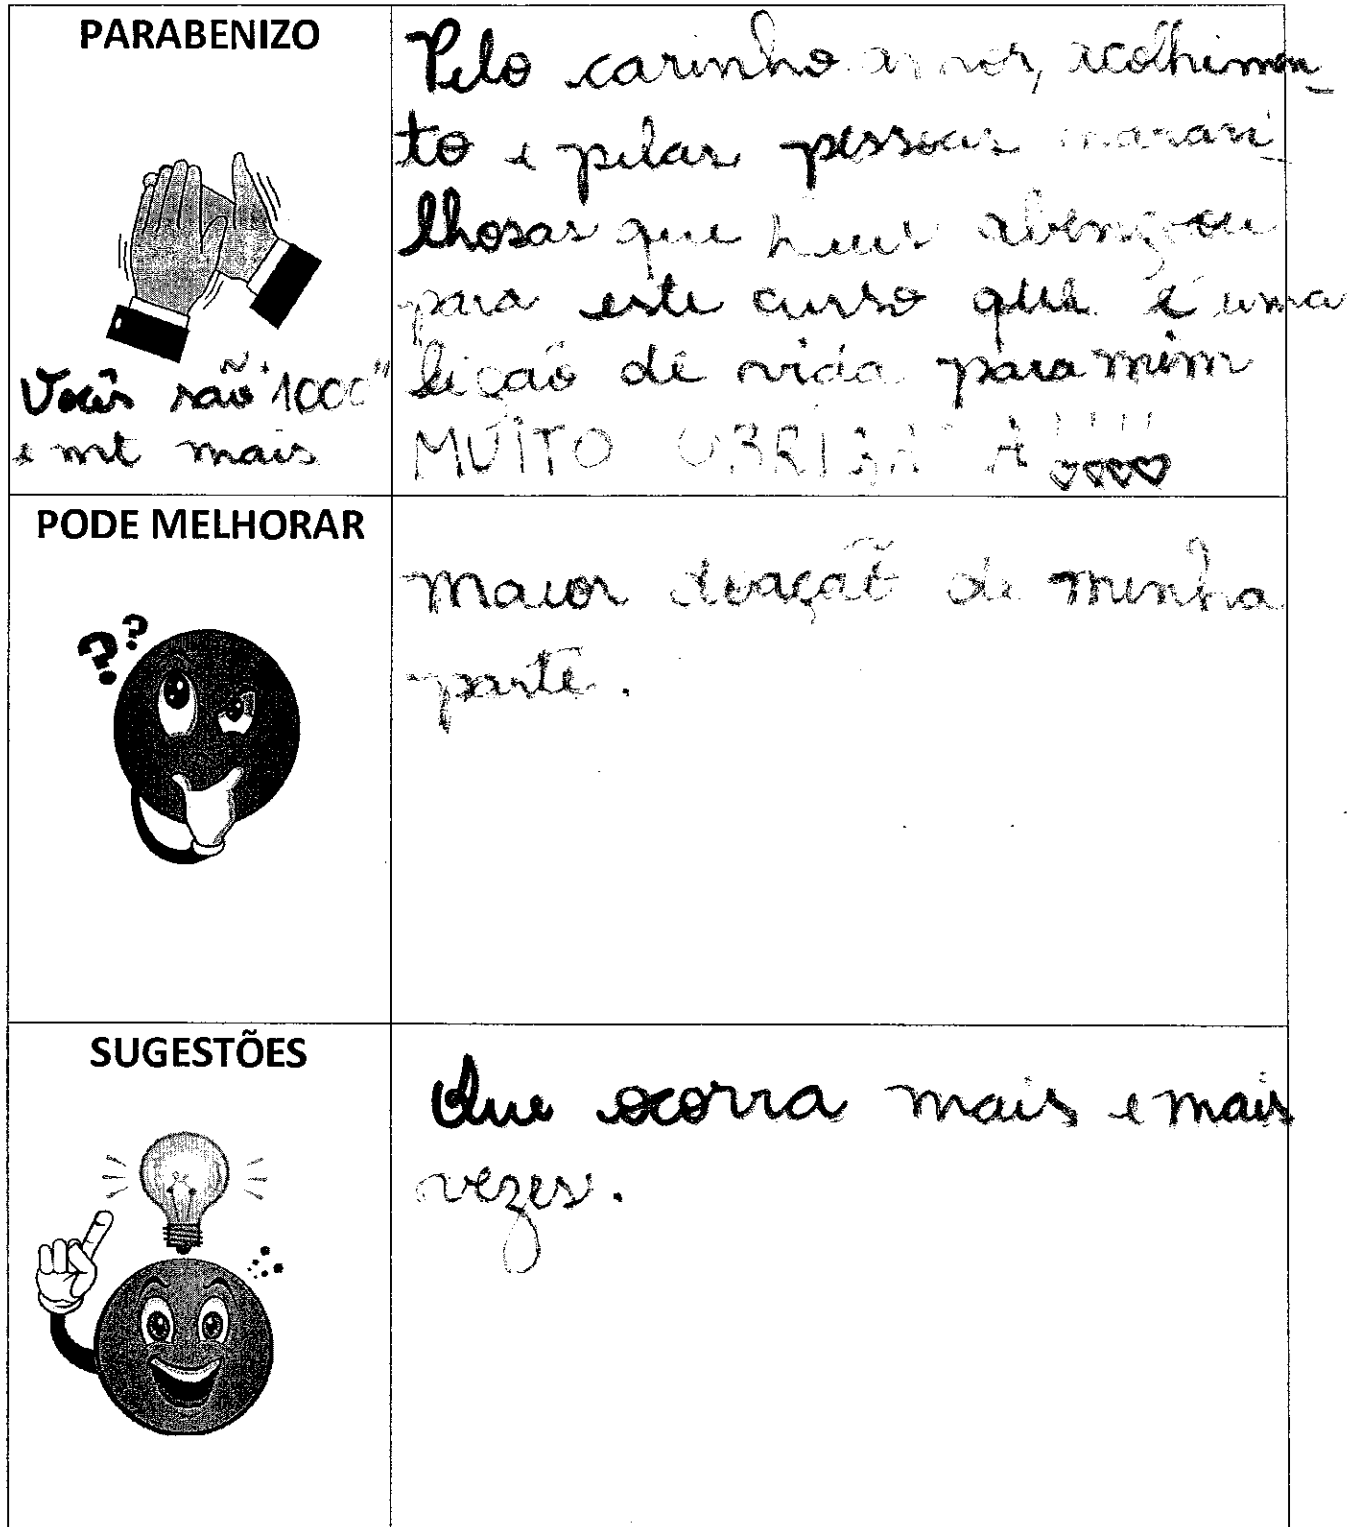 PARABENIZO
Pelo carinho amor, acolhimen_
to e pelas pessoas maravi_
lhosas que Deus abençoou
para este curso que é uma
lição de vida para mim
MUITO OBRIGADA!!!!
Vocês são "1000"
e mt mais
PODE MELHORAR
??
maior doação de minha
parte.
SUGESTÕES
Que ocorra mais e mais
vezes.